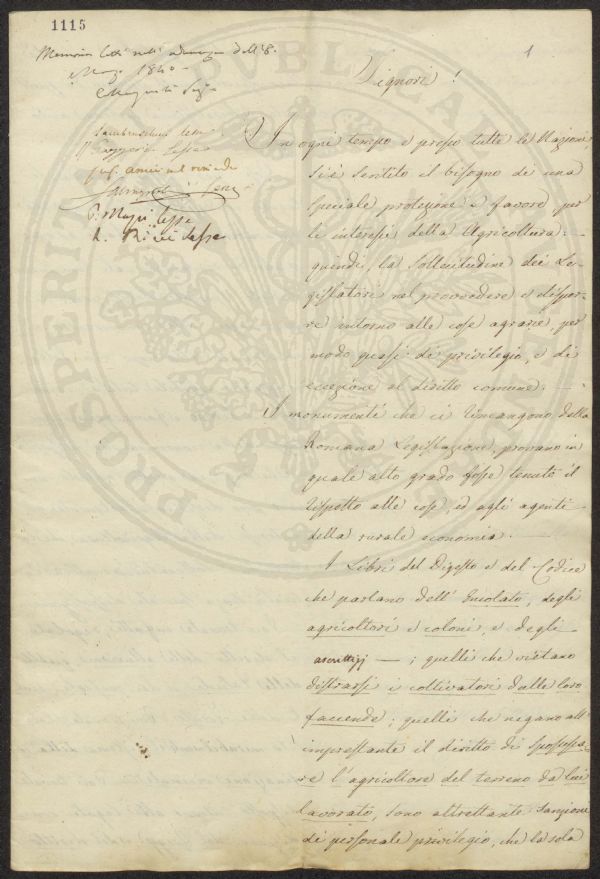 1115
1
Memoria letta nell' adunanza dell' 8.
Marzo 1840
Signori!
In ogni tempo e presso tutte le Nazioni
si è sentito il bisogno di una
speciale protezione e favore per
le interessi della Agricoltura:
quindi, la sollecitudine dei Le-
gislatori nel provvedere e dispor-
re intorno alle cose agrarie, per
modo quasi di privilegio, e di
eccezione al diritto comune. —
I monumenti che ci rimangono della
Romana Legislazione, provano in
quale alto grado fosse tenuto il
rispetto alle cose, ed agli agenti
della rurale economia.
I Libri del Digesto e del Codice
che parlano dell' degli
agricoltori e coloni, e degli
ascrittizj —; quelli che vietano
distrarsi i coltivatori dalle loro
faccende; quelli che negano all'
imprestante il diritto di spossessa-
re l'agricoltore del terreno da lui
lavorato, sono altrettante sanzione
di personale privilegio, che la sola
PROSPERITATI PUBLICAE